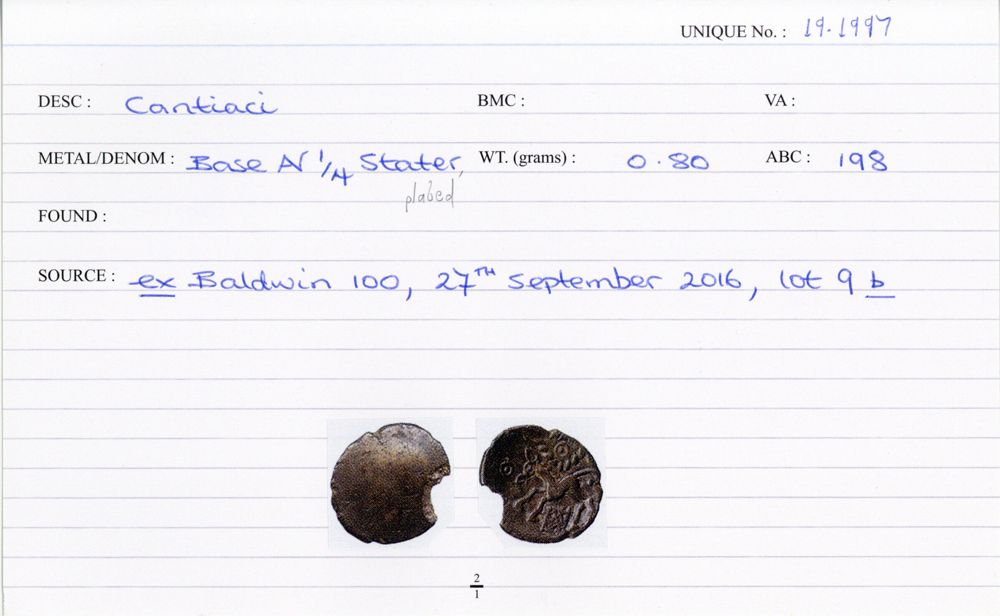 UNIQUE No. : 19.1997
DESC : Cantiaci BMC : VA :
METAL/DENOM : Base AV 1/4 Stater, WT. (grams) : 0.80 ABC : 198
plated
FOUND :
SOURCE : ex Baldwin 100, 27TH September 2016, lot 9 b
2/1